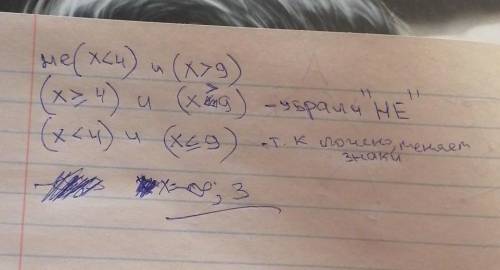 не(x<4) и (x>9)
(x≥4) и (x>9) - убрали "НЕ"
(x<4) и (x≤9) т. к ложно, меняем знаки
x=-∞; 3